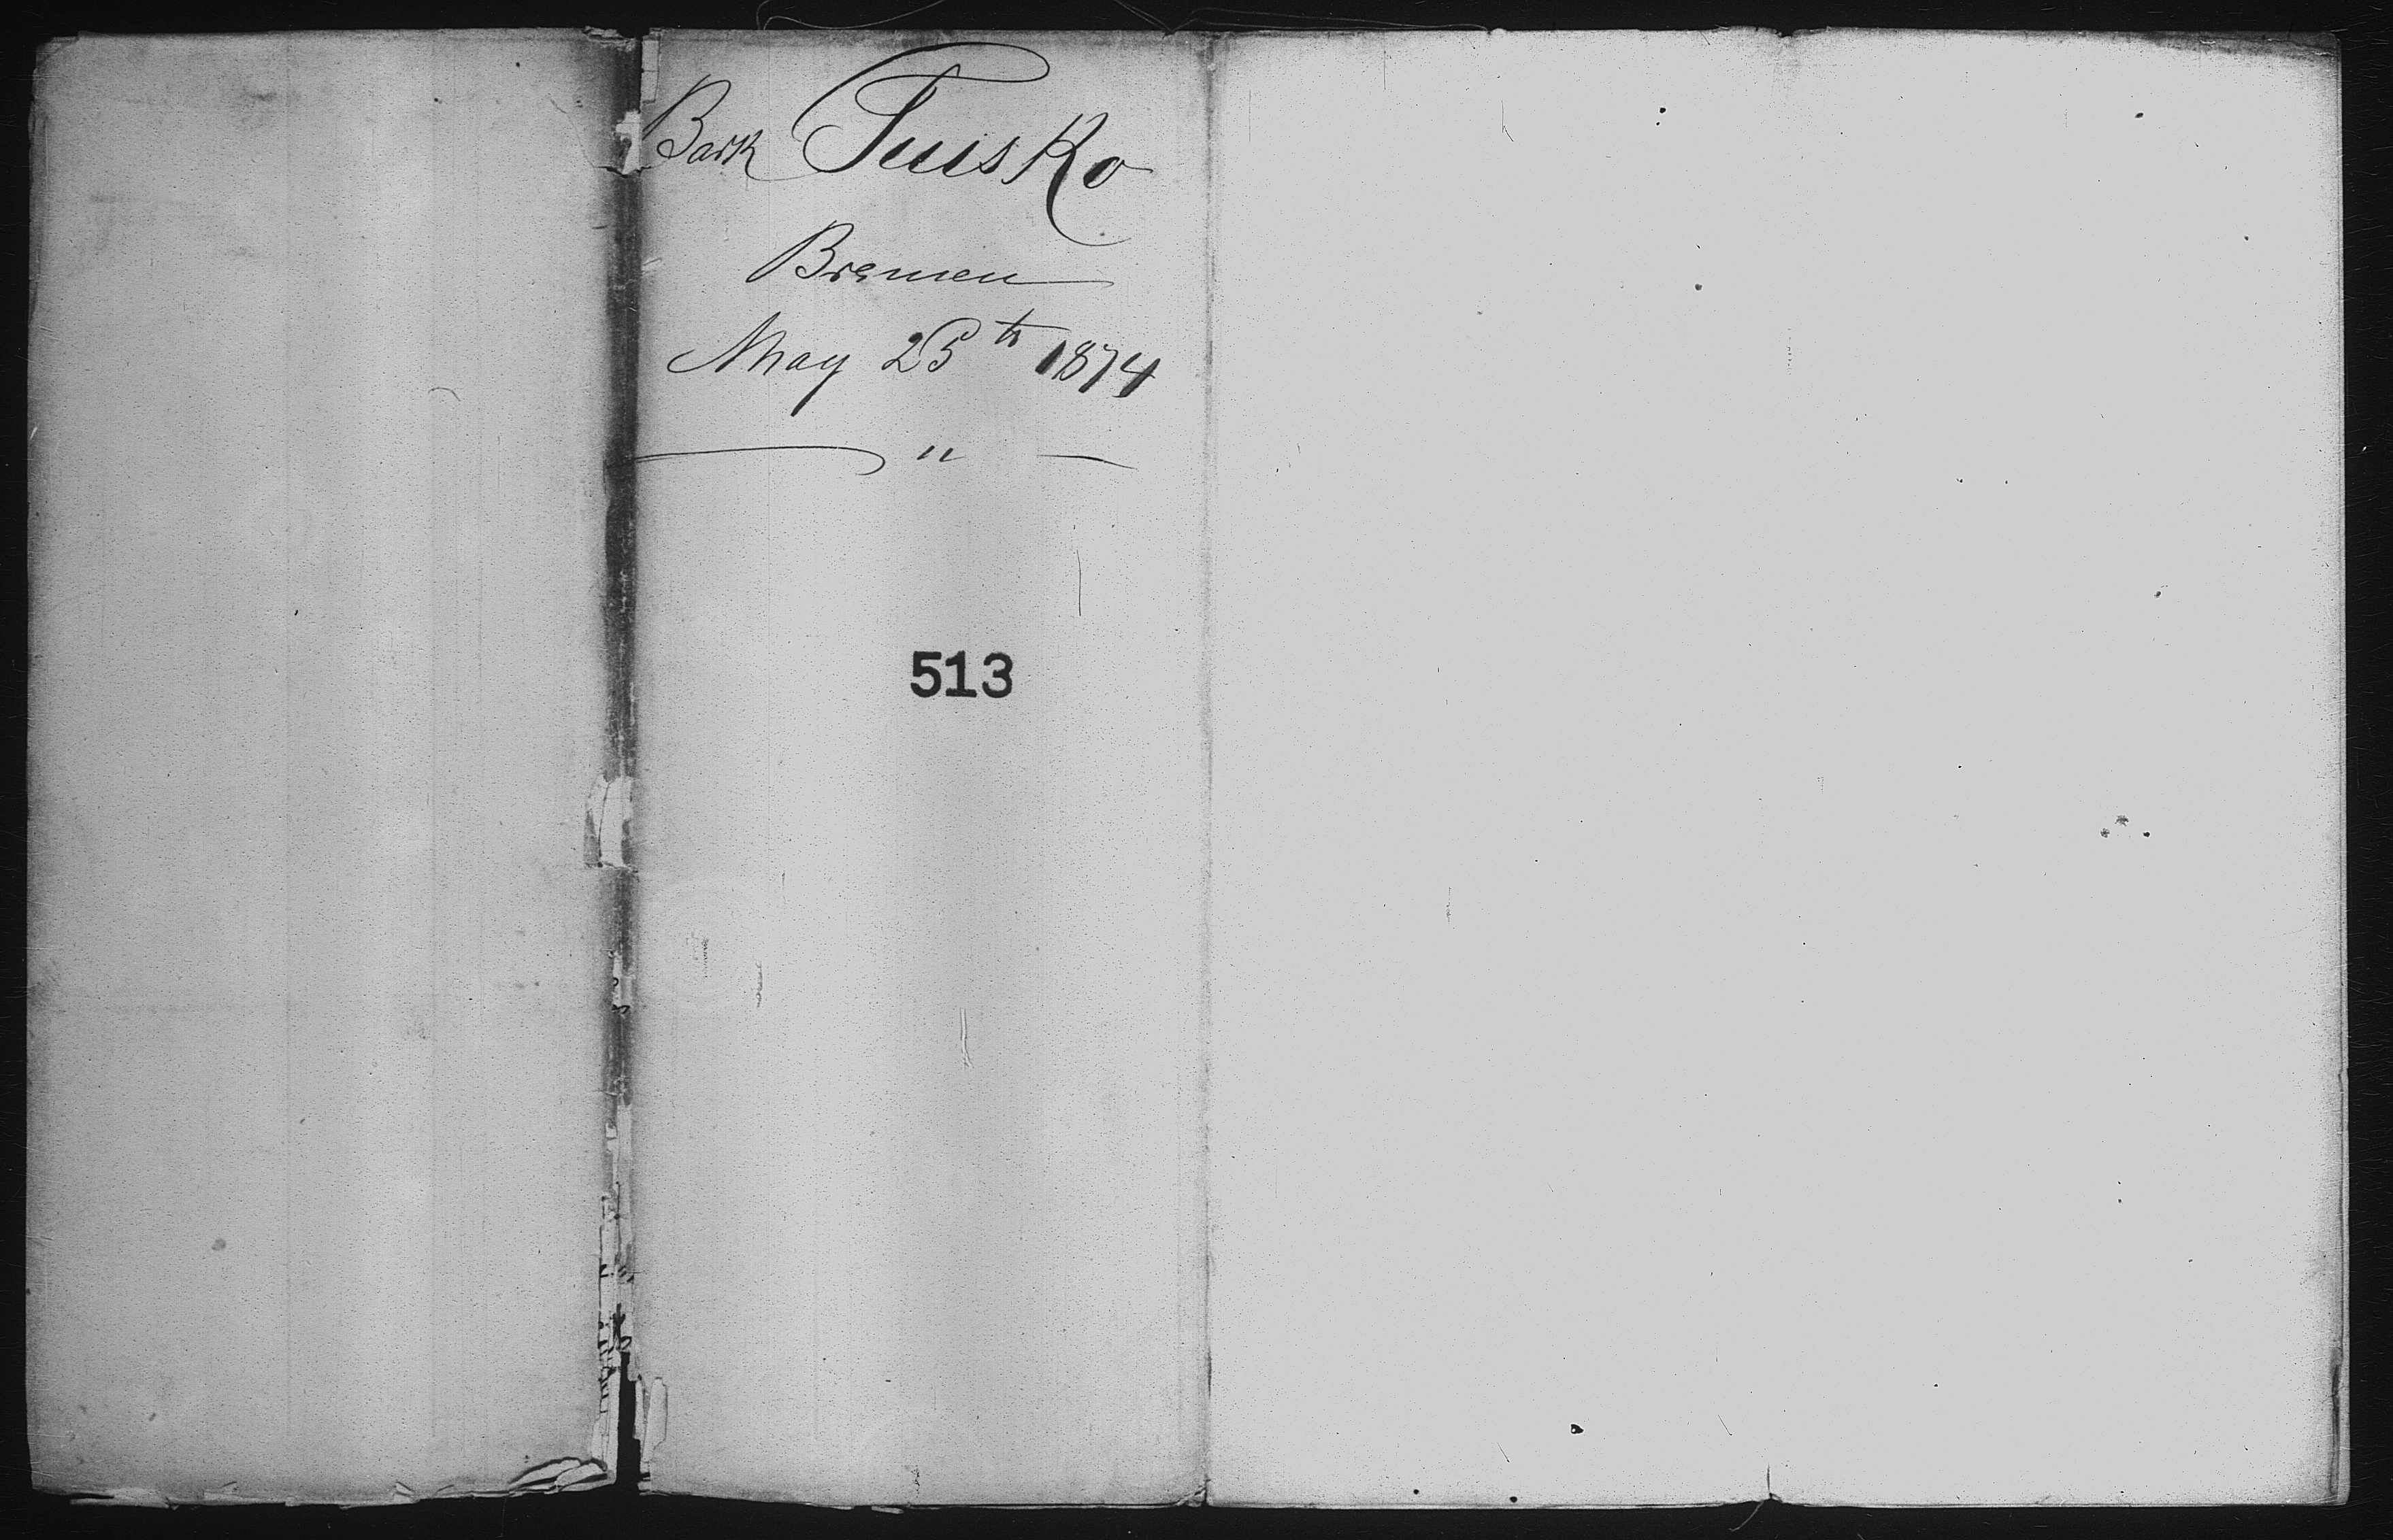 Bark Tuisko
Bremen
May 25th 1874
"
513